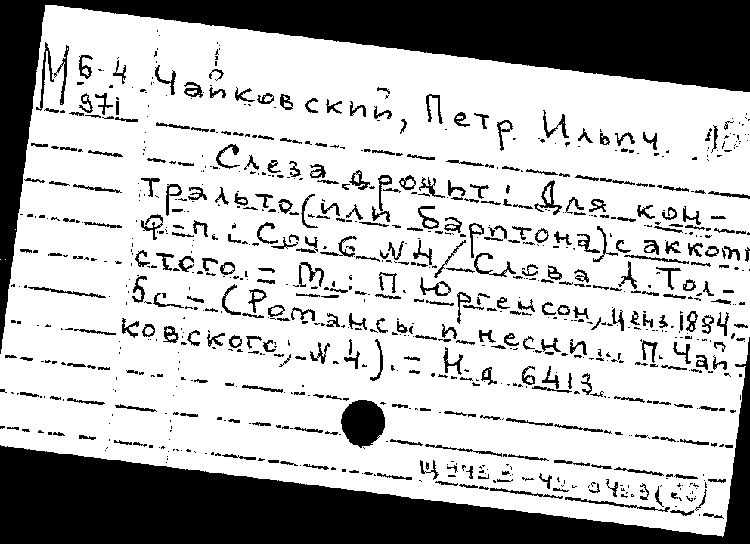 М Б-4 Чайковский, Петр Ильич.
971
Слеза дрожит: Для кон-
тральто (или баритона) с акком.
ф=п.: Соч. 6 N4 / Слова А. Тол-
стого. = М.: П. Юргенсон, ценз. 1884.-
5с - (Романсы и песни... П. Чай-
ковского; N.4). = Н.д 6413.
Щ943.3-42-